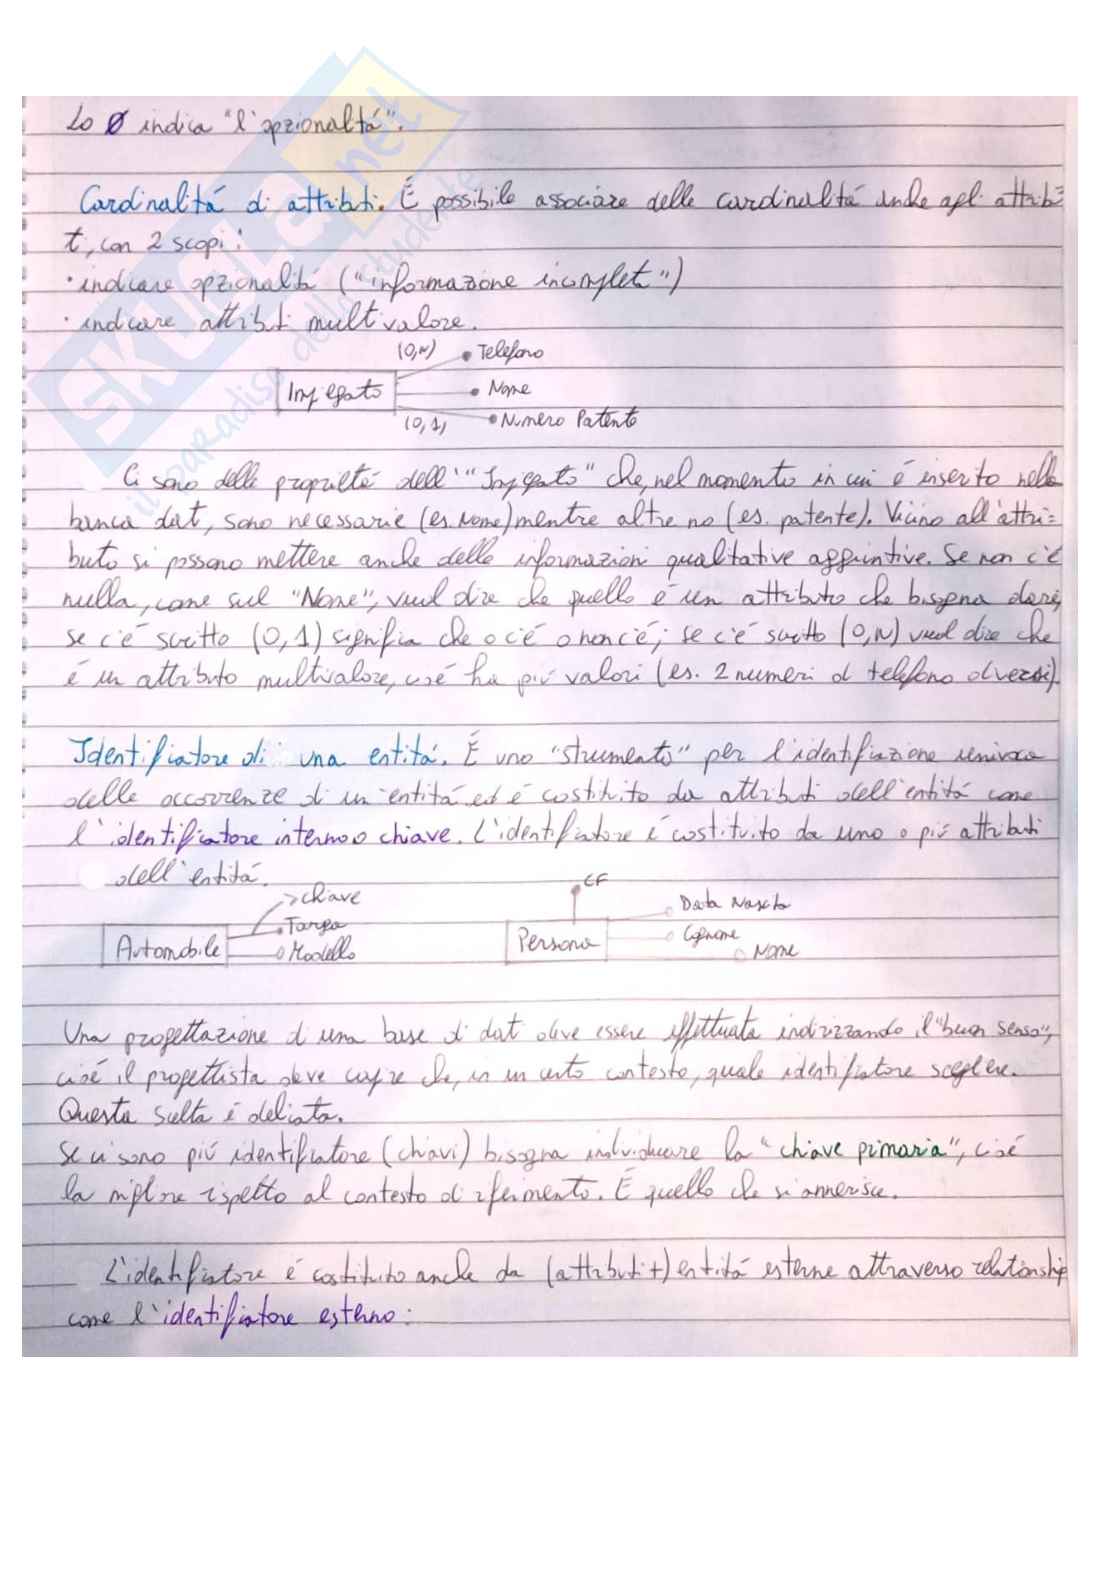 Lo 0 indica "l'opzionalitá".
Cardinalitá di attributi. É possibile associare delle cardinalitá anche agli attribu=
ti, con 2 scopi:
• indicare opzionalitá ("informazione incompleta")
• indicare attributi multivalore.
(0,N) Telefono
Impiegato Nome
(0,1) Numero Patente
Ci sono delle proprietá dell'"Impiegato" che, nel momento in cui é inserito nella
banca dati, sono necessarie (es. nome) mentre altre no (es. patente). Vicino all'attri=
buto si possono mettere anche delle informazioni qualitative aggiuntive. Se non c'é
nulla, come sul "Nome", vuol dire che quello é un attributo che bisogna dare,
se c'é scritto (0,1) significa che o c'é o non c'é; se c'é scritto (0,N) vuol dire che
é un attributo multivalore, cioé ha piú valori (es. 2 numeri di telefono diversi).
Identificatore di una entitá. É uno "strumento" per l'identificazione univoca
delle occorrenze di un'entitá ed é costituito da attributi dell'entitá come
l'identificatore interno o chiave. L'identificatore é costituito da uno o piú attributi
dell'entitá.
chiave
Targa
Automobile
Modello
CF
Data Nascita
Persona
Cognome
Nome
Una progettazione di una base di dati deve essere effettuata indirizzando il "buon senso",
cioé il progettista deve capire che, in un certo contesto, quale identificatore scegliere.
Questa scelta é delicata.
Se ci sono piú identificatore (chiavi) bisogna individuare la "chiave primaria", cioé
la migliore rispetto al contesto di riferimento. É quello che si annerisce.
L'identificatore é costituito anche da (attributi +) entitá esterne attraverso relationship
come l'identificatore esterno:
SKUOLA.net
il paradiso dello studente